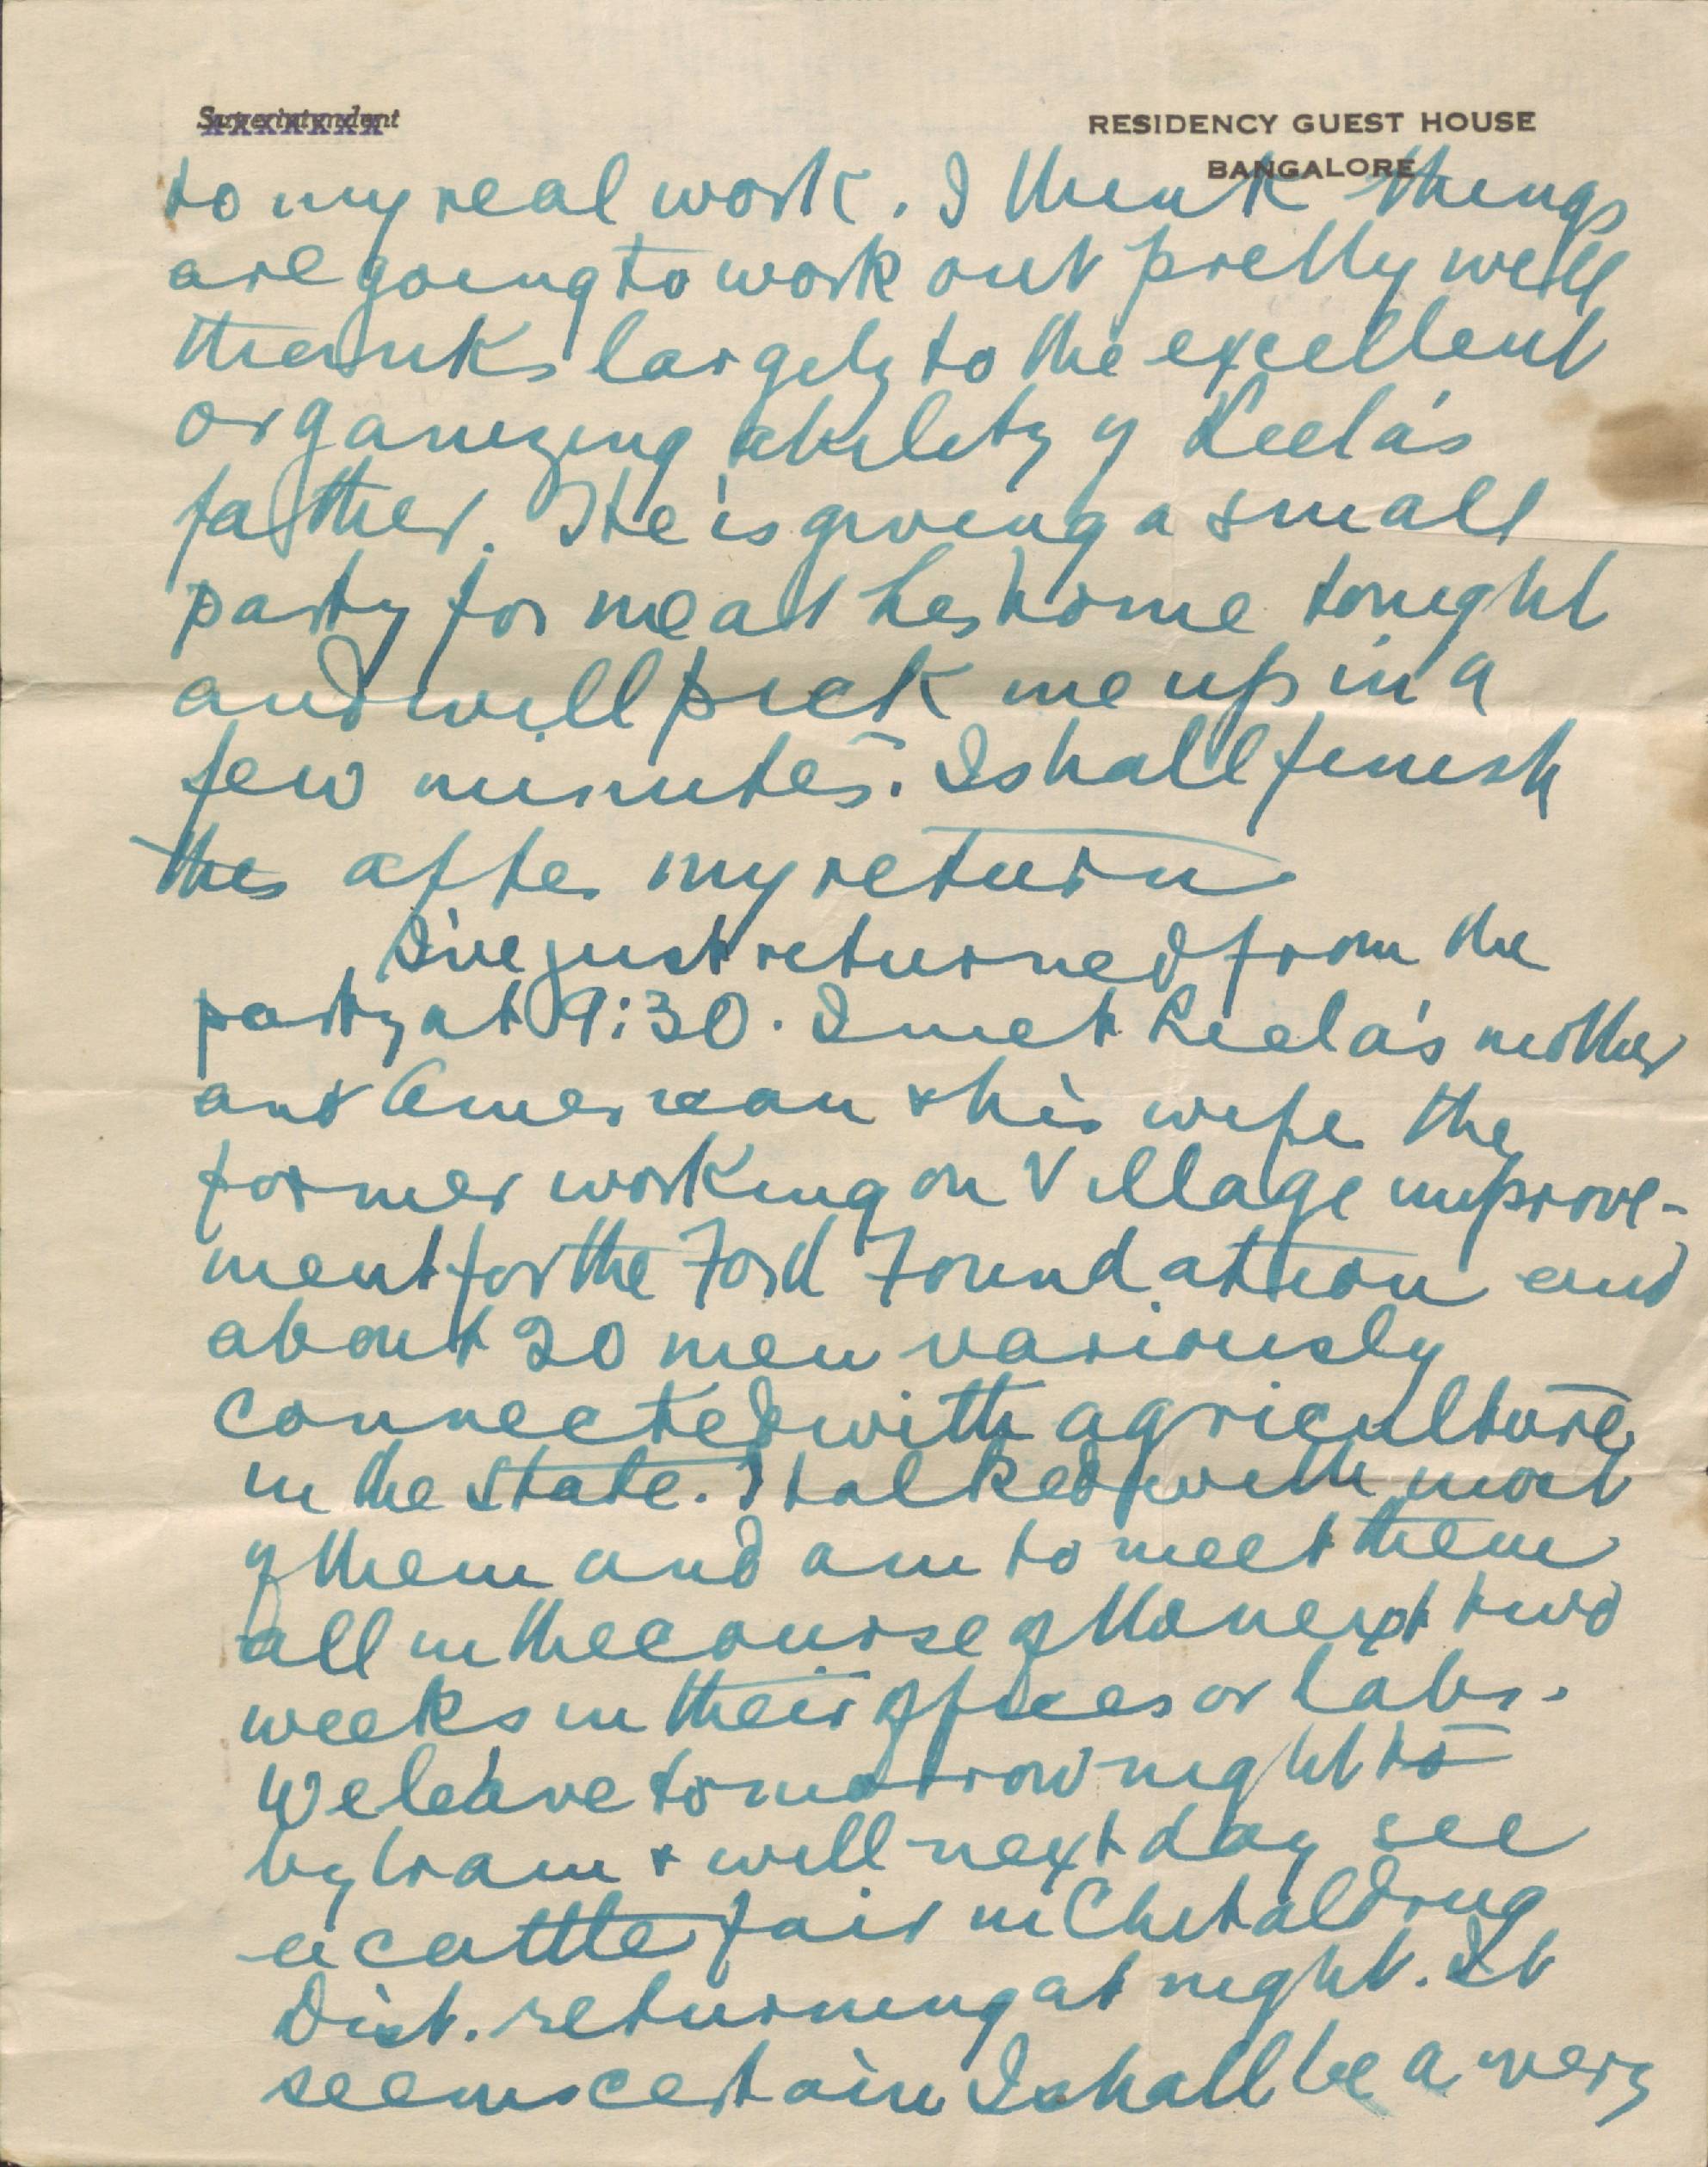 Superintendent
RESIDENCY GUEST HOUSE
BANGALORE
to my real work. I think things
are going to work out pretty well
thanks largely to the excellent
organizing ability of Leela's
father. He is giving a small
party for me at his home tonight
and will pick me up in a
few minutes. I shall finish
this after my return
I've just returned from the
party at 9:30. I met Leela's mother
and American & his wife the
former working on Village improve-
ment for the Ford Foundation and
about 20 men variously
connected with agriculture
in the state. I talked with most
of them and am to meet them
all in the course of the next two
weeks in their offices or labs.
We leave tomorrow night to
by train & will next day see
a cattle fair in Chitaldrug
Dist. returning at night. It
seems certain I shall be a very